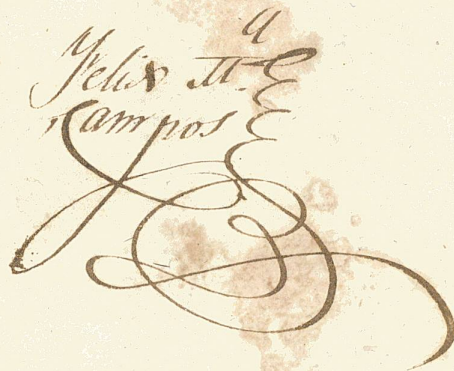 Felix M.ª
Campos